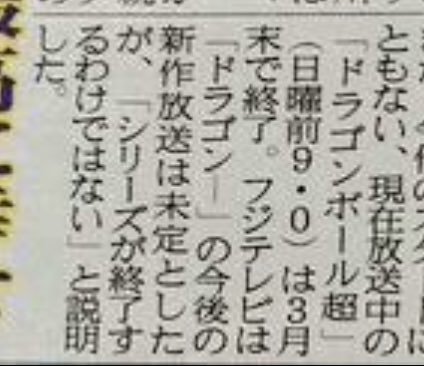 ともない、現在放送中の
「ドラゴンボール超」
（日曜前9・0）は3月
末で終了。フジテレビは
「ドラゴン―」の今後の
新作放送は未定とした
が、「シリーズが終了す
るわけではない」と説明
した。